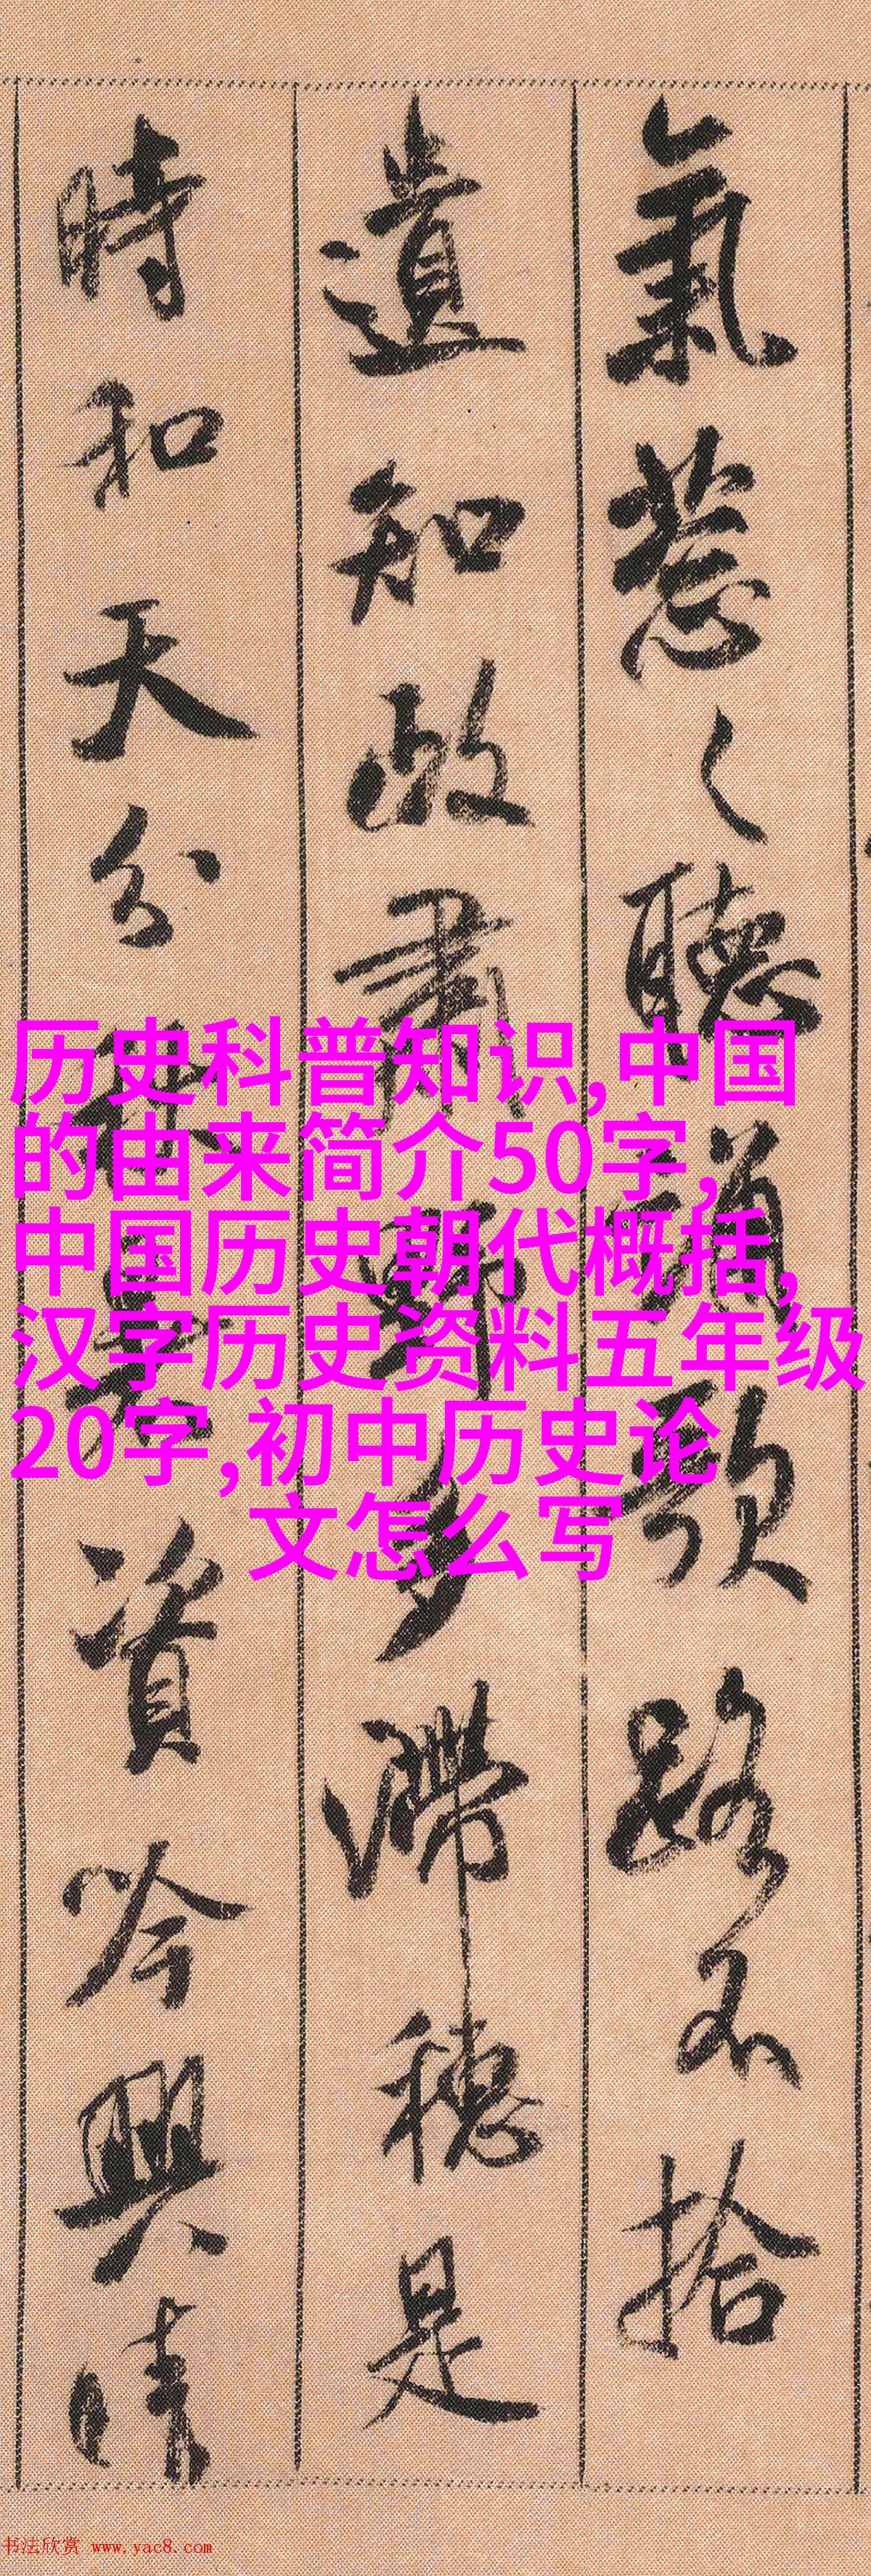 氣葱々聽誦歌路不拾
遺知政肅野多滯穗是
時和天分秋暑資吟興晴
历史科普知识,中国
的由来简介50字,
中国历史朝代概括,
汉字历史资料五年级
20字,初中历史论
文怎么写
书法欣赏 www.yac8.com